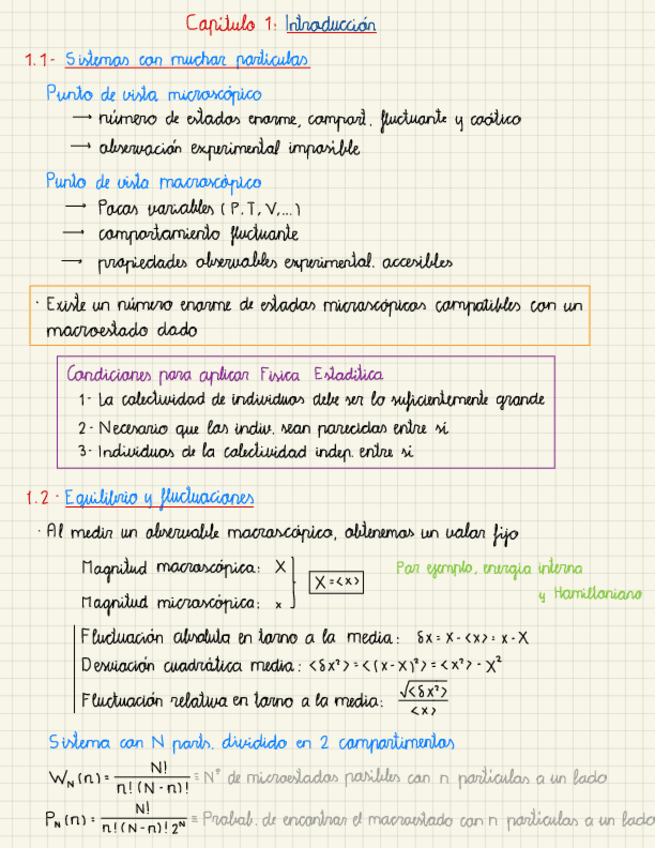 Capítulo 1: Introducción
1.1- Sistemas con muchar partículas
Punto de vista microscópico
→ número de estados enorme, comport. fluctuante y caótico
→ observación experimental imposible
Punto de vista macroscópico
→ Pocas variables (P,T,V,...)
→ comportamiento fluctuante
→ propiedades observables experimental. accesibles
· Existe un número enorme de estados microscópicos compatibles con un
macroestado dado
Condiciones para aplicar Física Estadítica
1- La colectividad de individuos debe ser lo suficientemente grande
2- Necesario que los indiv. sean parecidos entre sí
3- Individuos de la colectividad indep. entre sí
1.2· Equilibrio y fluctuaciones
· Al medir un observable macroscópico, obtenemos un valor fijo
Magnitud macroscópica: X
X=<x>
Por ejemplo, energía interna
y Hamiltoniano
Magnitud microscópica: x
Fluctuación absoluta en torno a la media: δx = x-<x> = x-X
Desviación cuadrática media: <δx²> = <(x-X)²> = <x²> - X²
Fluctuación relativa en torno a la media: √<δx²> / <x>
Sistema con N parts. dividido en 2 compartimentos
W_N(n) = N! / n!(N-n)! ≡ Nº de microestados posibles con n partículas a un lado
P_N(n) = N! / n!(N-n)! 2^N ≡ Probab. de encontrar el macroestado con n partículas a un lado